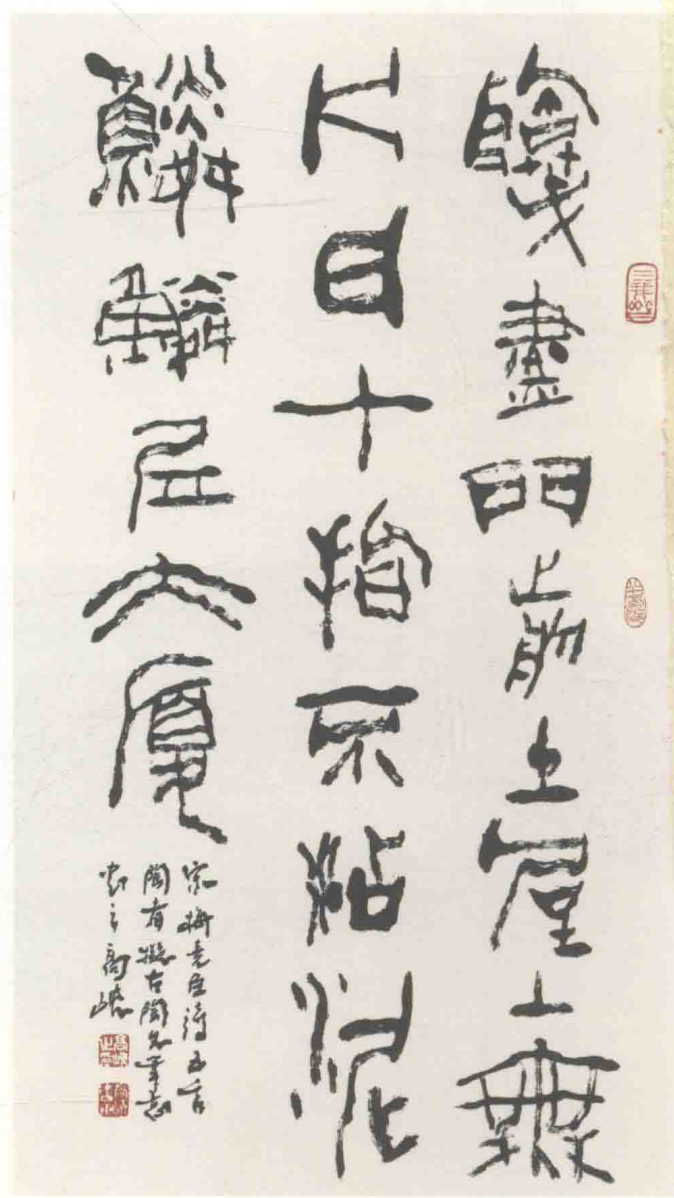 陶盡門前土屋上無
片瓦十指不粘泥
鱗鱗居大廈
宋梅堯臣詩五言
陶者擬古陶文筆意
書之高峽